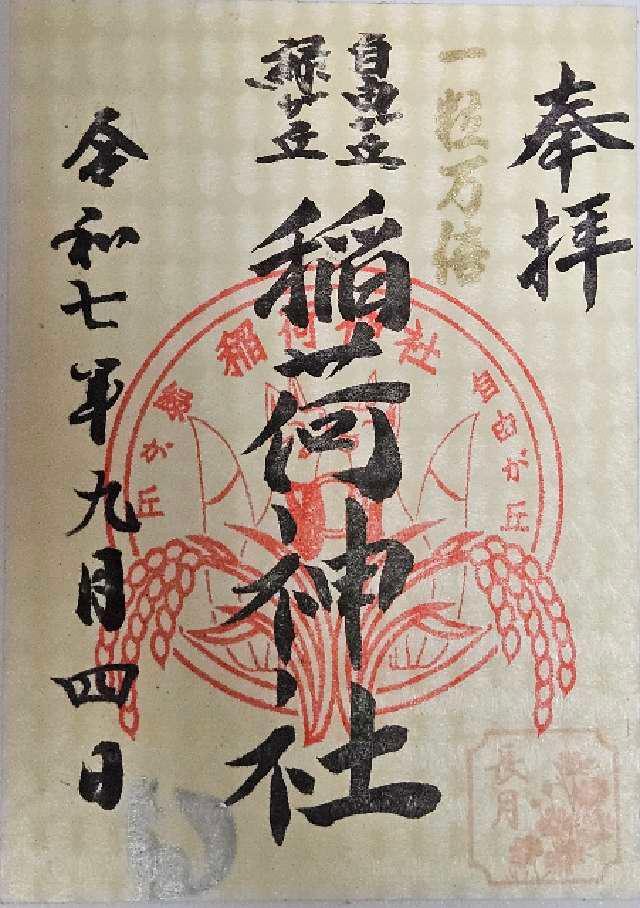 奉拝
一粒万倍
自由が丘
緑が丘
稲荷神社
稲荷神社
自由が丘
緑が丘
令和七年九月四日
長月